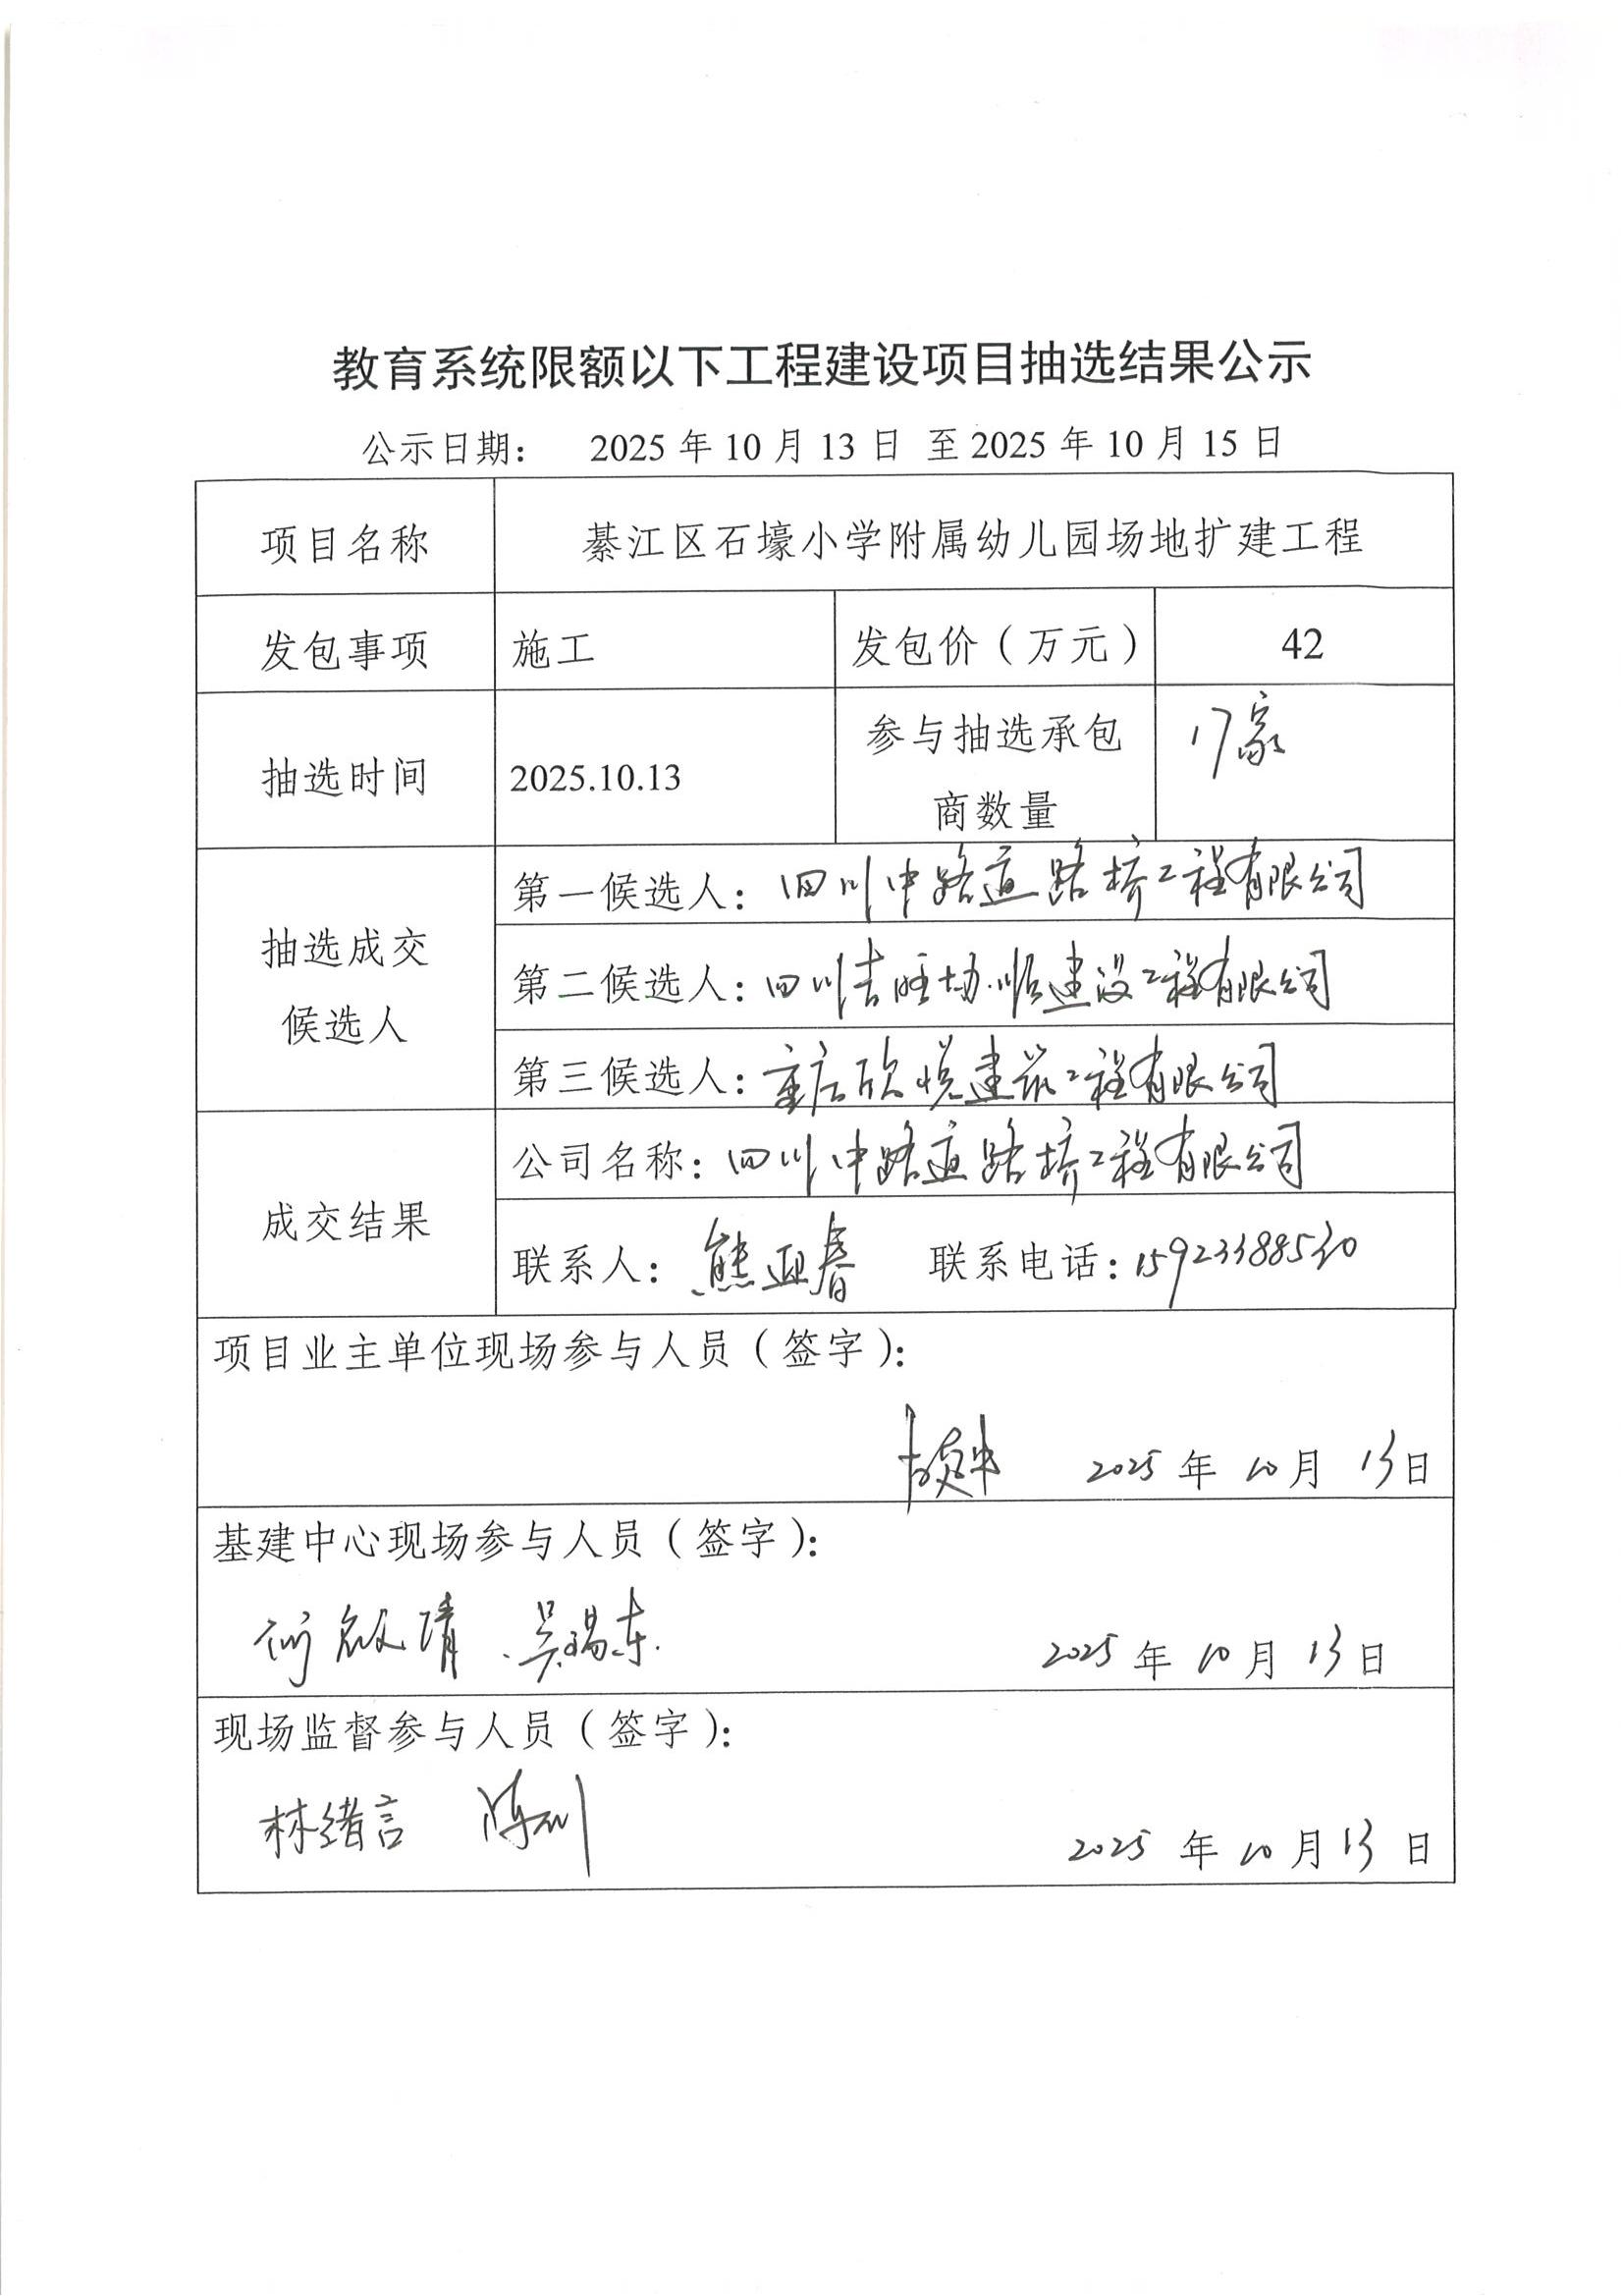 教育系统限额以下工程建设项目抽选结果公示
公示日期： 2025 年 10 月 13 日 至 2025 年 10 月 15 日
项目名称 綦江区石壕小学附属幼儿园场地扩建工程
发包事项 施工 发包价（万元） 42
抽选时间 2025.10.13 参与抽选承包商数量 17家
抽选成交候选人
第一候选人：四川中路道路桥工程有限公司
第二候选人：四川吉旺协顺建设工程有限公司
第三候选人：重庆欣悦建筑工程有限公司
成交结果
公司名称：四川中路道路桥工程有限公司
联系人：熊亚春 联系电话：15923388530
项目业主单位现场参与人员（签字）：
2025 年 10 月 13 日
基建中心现场参与人员（签字）：
吴瑞东
2025 年 10 月 13 日
现场监督参与人员（签字）：
林绪言
2025 年 10 月 13 日